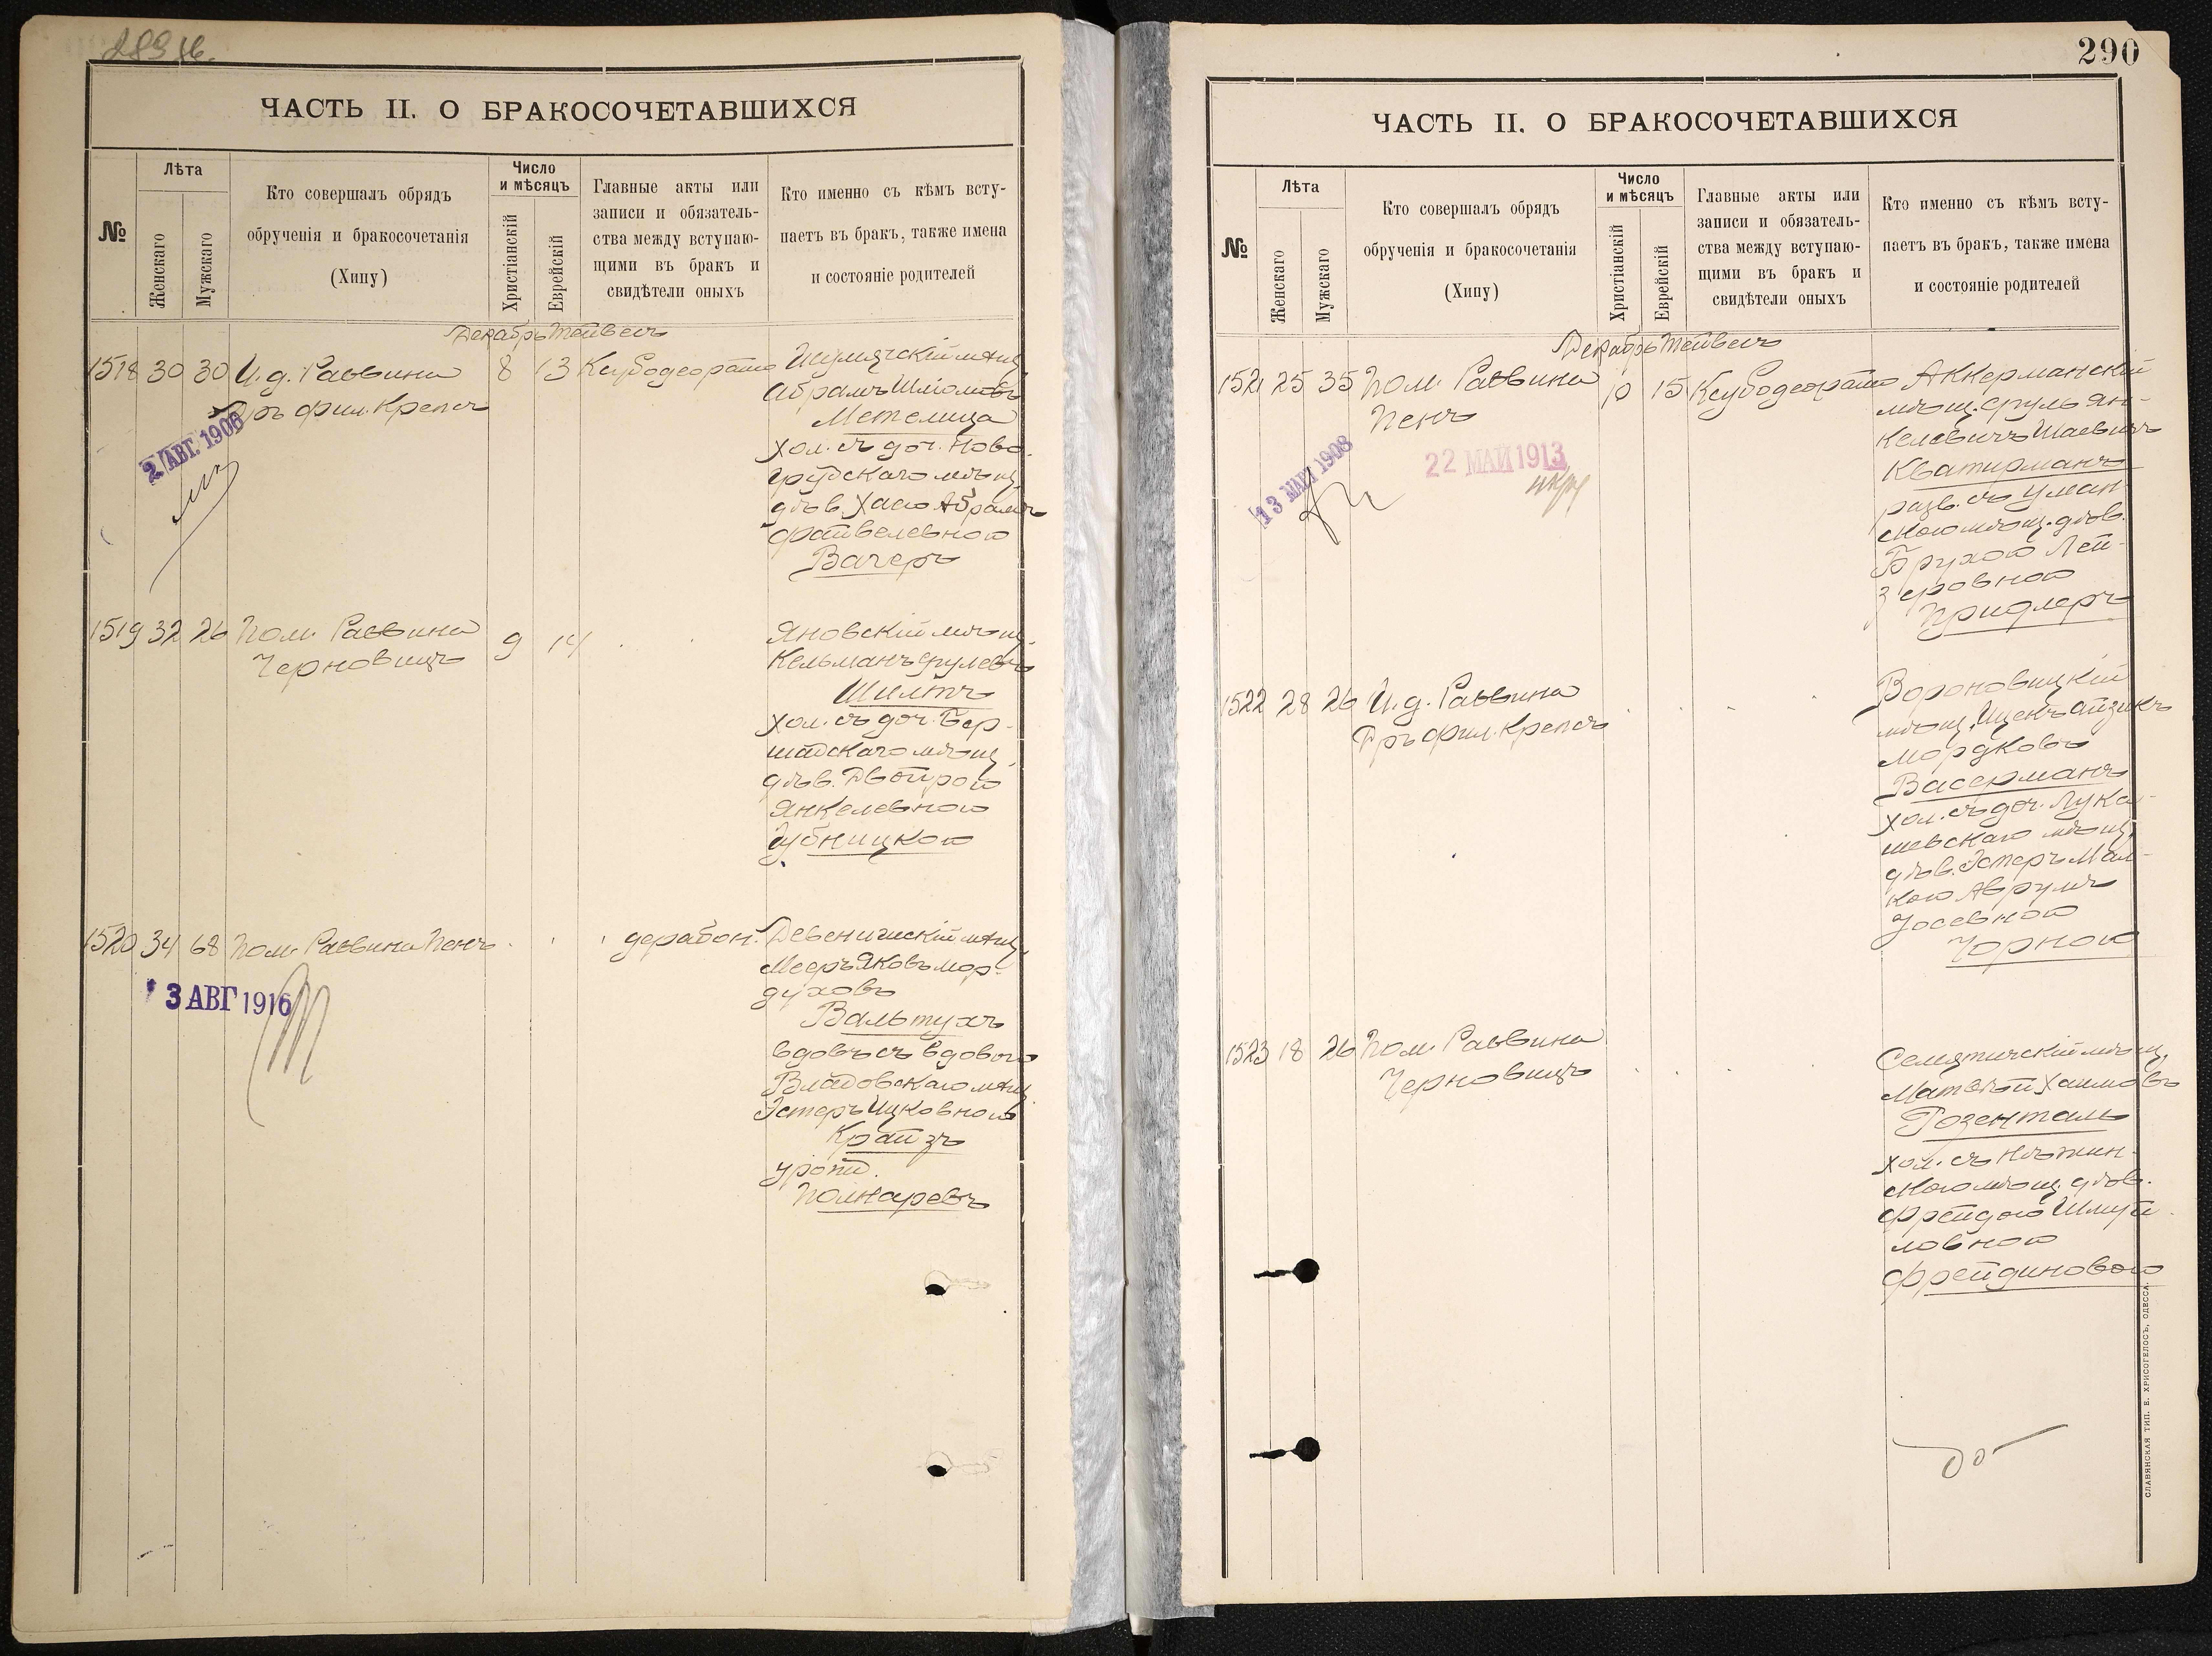 ЧАСТЬ II. О БРАКОСОЧЕТАВШИХСЯ
№
Лѣта
Женскаго
Мужскаго
Кто совершалъ обрядъ
обрученія и бракосочетанія
(Хипу)
Число
и мѣсяцъ
Христіанскій
Еврейскій
Главные акты или
записи и обязатель-
ства между вступаю-
щими въ бракъ и
свидѣтели оныхъ
Кто именно съ кѣмъ всту-
паетъ въ бракъ, также имена
и состояніе родителей
Декабрь Тейвесъ
1518 30 30 И. д. Раввина 8 13
Д-ръ фил. Крепсъ
2 АВГ. 1906
Абрамъ Шломовъ
Метелица
хол. съ доч. Ново-
грудскаго мѣщ.
дѣв. Хаею Абрамъ
Файвелевною
Вачеръ
1519 32 26 Пом. Раввина 9 14
Черновицъ
Яновскій мѣщ.
Кельманъ Срулевъ
Шилтъ
хол. съ доч. Бер-
шадскаго мѣщ.
дѣв. Двойрою
Янкелевною
Дубницкою
1520 34 68 Пом. Раввина Пенъ
дерабон.
Девенишскій мѣщ.
Мееръ Яковъ Мор-
духовъ
Вальтухъ
вдовъ съ вдовою
мѣщ.
Эстеръ Ицковною
Крайзъ
урожд.
3 АВГ 1916
290
ЧАСТЬ II. О БРАКОСОЧЕТАВШИХСЯ
№
Лѣта
Женскаго
Мужскаго
Кто совершалъ обрядъ
обрученія и бракосочетанія
(Хипу)
Число
и мѣсяцъ
Христіанскій
Еврейскій
Главные акты или
записи и обязатель-
ства между вступаю-
щими въ бракъ и
свидѣтели оныхъ
Кто именно съ кѣмъ всту-
паетъ въ бракъ, также имена
и состояніе родителей
Декабрь Тейвесъ
1521 25 35 Пом. Раввина 10 15
Пенъ
13 МАР 1908
22 МАЙ 1913
Аккерманскій
мѣщ. Сруль Ян-
келевичъ Шаевичъ
Кватирманъ
разв. съ Уман-
скою мѣщ. дѣв.
Брухою Лей-
зеровною
Придлеръ
1522 28 26 И. д. Раввина
Д-ръ фил. Крепсъ
Вороновицкій
мѣщ. Ицекъ Айзикъ
Мордковъ
Васерманъ
хол. съ доч. Лука-
шевскаго мѣщ.
дѣв. Эстеръ Мал-
кою Аврумъ
Іосевною
Чорною
1523 18 26 Пом. Раввина
Черновицъ
Семятичскій мѣщ.
Матвѣй Хаимовъ
Розенталь
хол. съ Нѣжин-
скою мѣщ. дѣв.
Фрейдою Шмуй-
ловною
Фрейдиновою
СЛАВЯНСКАЯ ТИП. Е. ХРИСОГЕЛОСЪ, ОДЕССА.